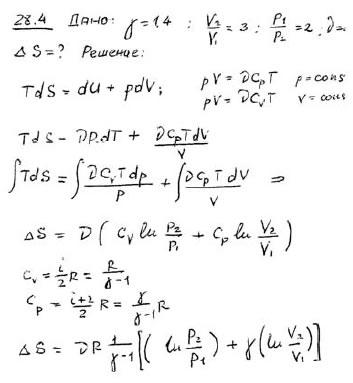 28.4 Дано: γ = 1.4 : V₂/V₁ = 3 : P₁/P₂ = 2, ν=
ΔS = ? Решение:
TdS = dU + pdV; pV = νCpT p = cons
pV = νCvT v = cons
TdS - νP.dT + νCpTdV/V
∫TdS = ∫νCvTdp/P + ∫νCpTdV/V ⇒
ΔS = ν(Cv ln P₂/P₁ + Cp ln V₂/V₁)
Cv = i/2 R = R/γ-1
Cp = i+2/2 R = γ/γ-1 R
ΔS = νR 1/γ-1 [(ln P₂/P₁) + γ(ln V₂/V₁)]